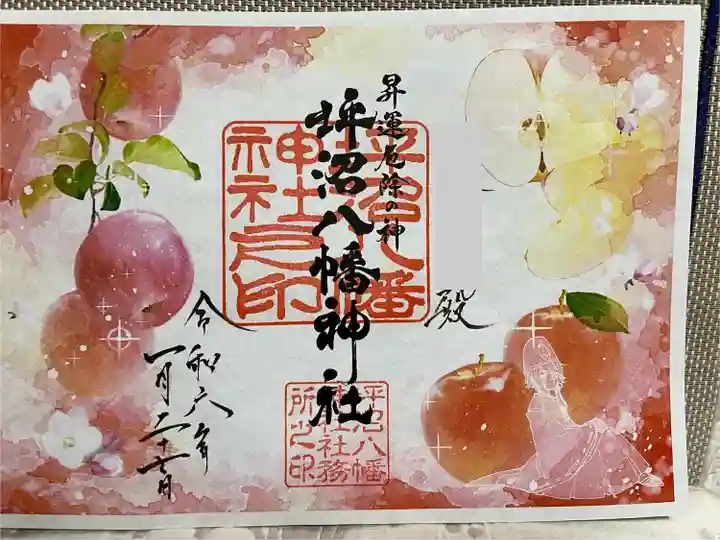 殿
昇運厄除の神
坪沼八幡神社
坪沼八幡
神社之印
坪沼八幡
神社社務
所之印
令和六年
一月二十七日